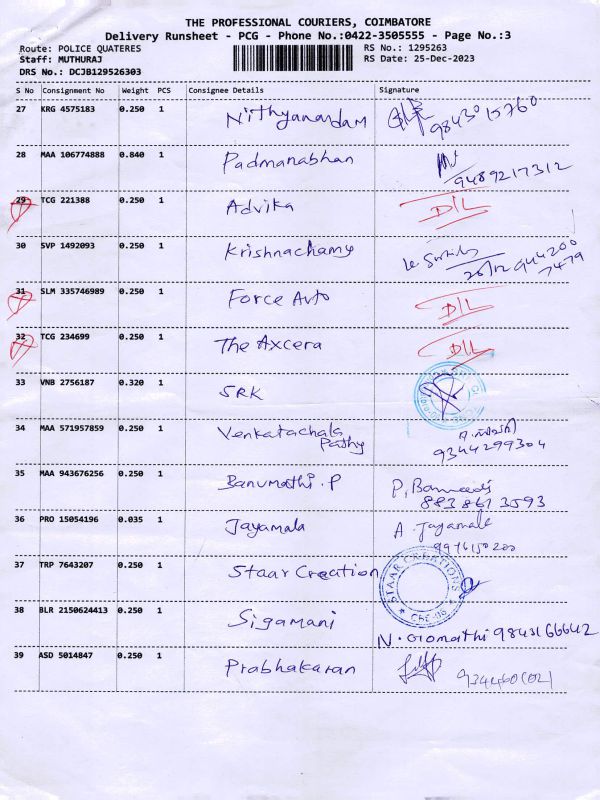 THE PROFESSIONAL COURIERS, COIMBATORE
Delivery Runsheet - PCG - Phone No.:0422-3505555 - Page No.:3
Route: POLICE QUATERES RS No.: 1295263
Staff: MUTHURAJ RS Date: 25-Dec-2023
DRS No.: DCJB129526303
S No Consignment No Weight PCS Consignee Details Signature
27 KRG 4575183 0.250 1 Nithyanandam 9843015760
28 MAA 106774888 0.840 1 Padmanabhan 9489217312
29 TCG 221388 0.250 1 Advika D/L
30 SVP 1492093 0.250 1 Krishnachamy 25/12 944200
7479
31 SLM 335746989 0.250 1 Force Auto D/L
32 TCG 234699 0.250 1 The Axcera D/L
33 VNB 2756187 0.320 1 SRK
34 MAA 571957859 0.250 1 Venkatachala
Pathy 9344299304
35 MAA 943676256 0.250 1 Banumathi.P
8838613593
36 PRO 15054196 0.035 1 Jayamala A. Jayamala
37 TRP 7643207 0.250 1 Staar Creation STAAR CREATIONS
38 BLR 2150624413 0.250 1 Sigamani
N. Gomathi 9843166642
39 ASD 5014847 0.250 1 Prabhakaran